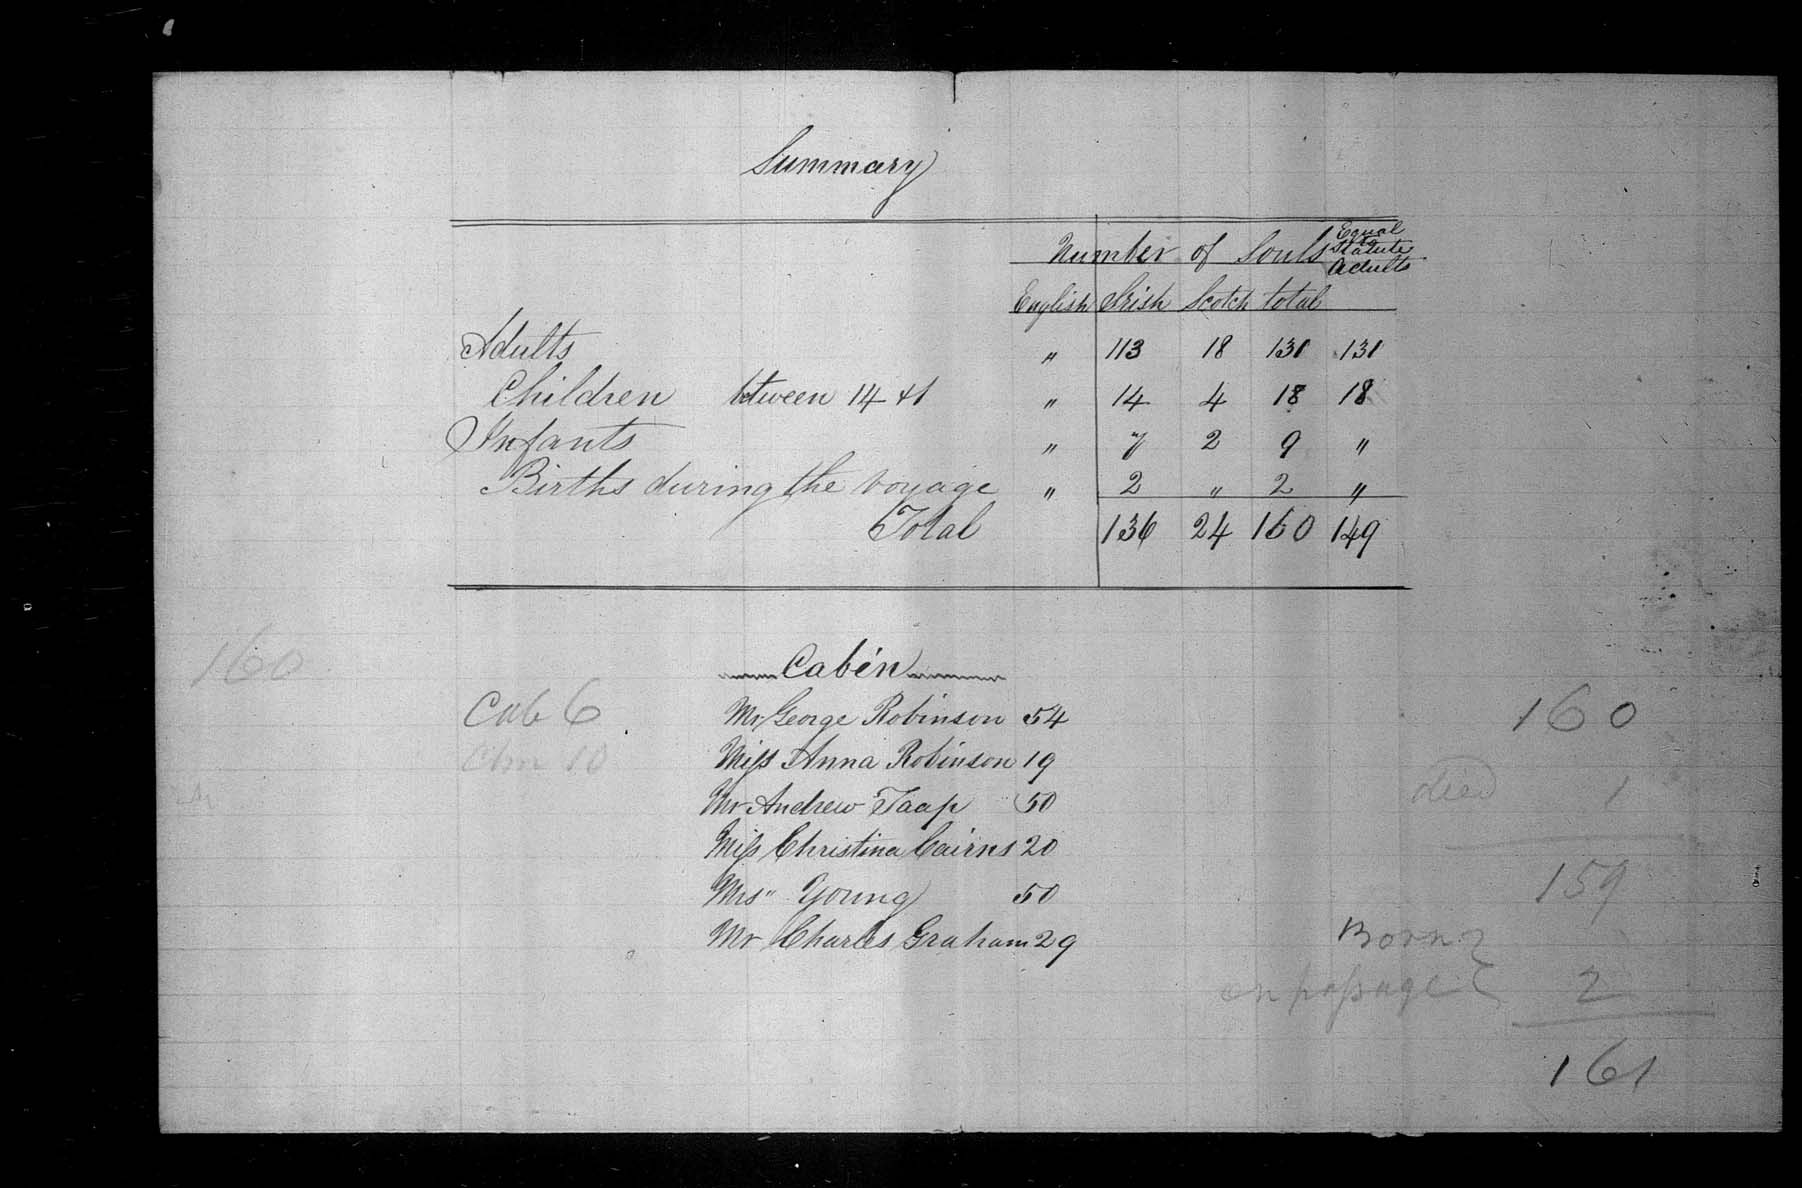 Summary
Number of Souls Equal to Statute Adults
English Irish Scotch total
Adults " 113 18 131 131
Children between 14 & 1 " 14 4 18 18
Infants " 7 2 9 "
Births during the voyage " 2 " 2 "
Total 136 24 160 149
160
Cabin
Cab 6
Mr George Robinson 54
Miss Anna Robinson 19
Mr Andrew Taap 50
Miss Christina Cairns 20
Mrs " Young 50
Mr Charles Graham 29
160
died 1
159
Born
on passage } 2
161